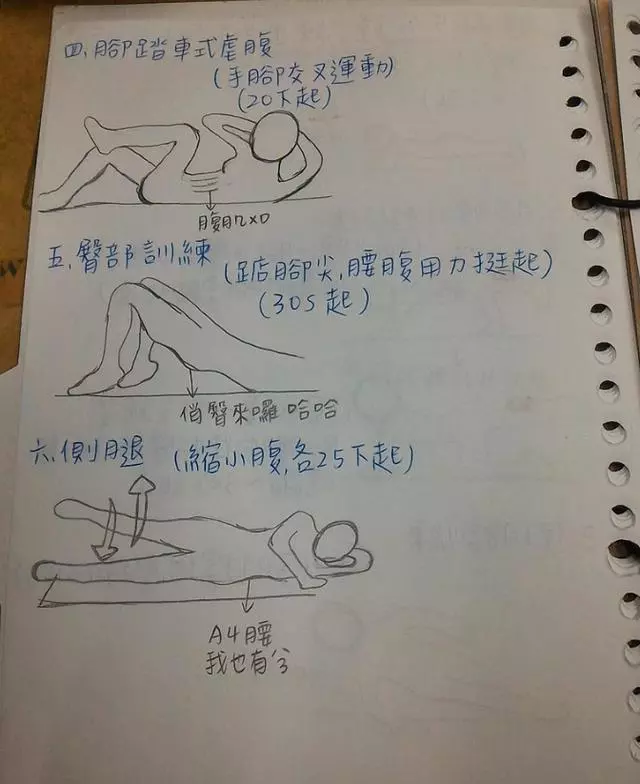 四、腳踏車式虐腹
(手腳交叉運動)
(20下起)
腹肌xD
五、臀部訓練 (踮腳尖,腰腹用力挺起)
(30S起)
俏臀來囉 哈哈
六、側腿 (縮小腹,各25下起)
A4腰
我也有